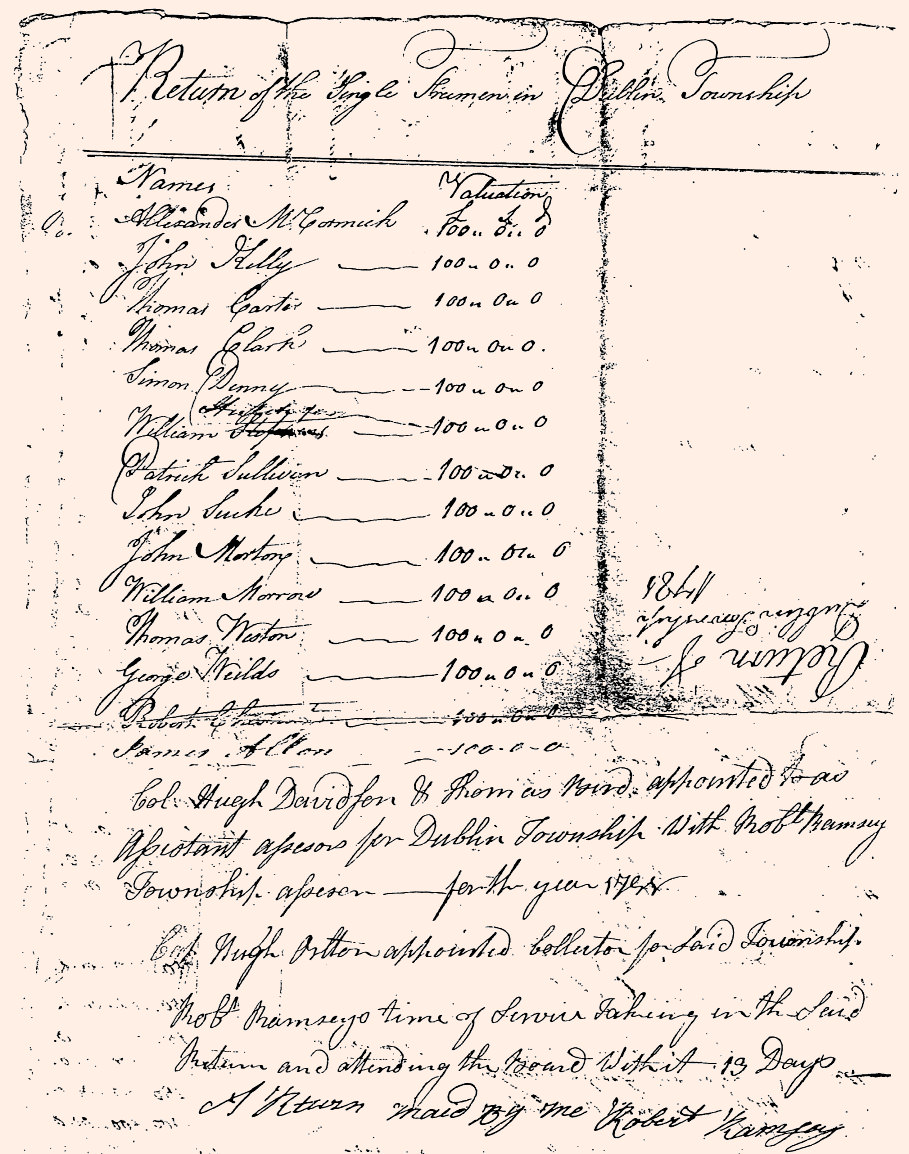 Return of the Single Freemen in Dublin Township
Names Valuation
£ s d
Allixander McCormick 100 " 0 " 0
John Kelly 100 " 0 " 0
Thomas Carter 100 " 0 " 0
Thomas Clark 100 " 0 " 0.
Simon Denny 100 " 0 " 0
William 100 " 0 " 0
Patrick Sullivan 100 " 0 " 0
John 100 " 0 " 0
John Morton 100 " 0 " 0
William Morrow 100 " 0 " 0
Thomas Weston 100 " 0 " 0
George Weilds 100 " 0 " 0
Robert 100 " 0 " 0
James Alton 100-0-0
Return of
Dublin Township
1781
Col. Hugh Davidson & Thomas Bird appointed as
Assistant assesors for Dublin Township With Robt Ramsey
Township assesor for th year
Hugh Orlton appointed Collector for Said Township
Robt Ramseys time of Service Takeing in th Said
Return and attending the Board With it 13 Days
A Rturn maid By me Robert Ramsey